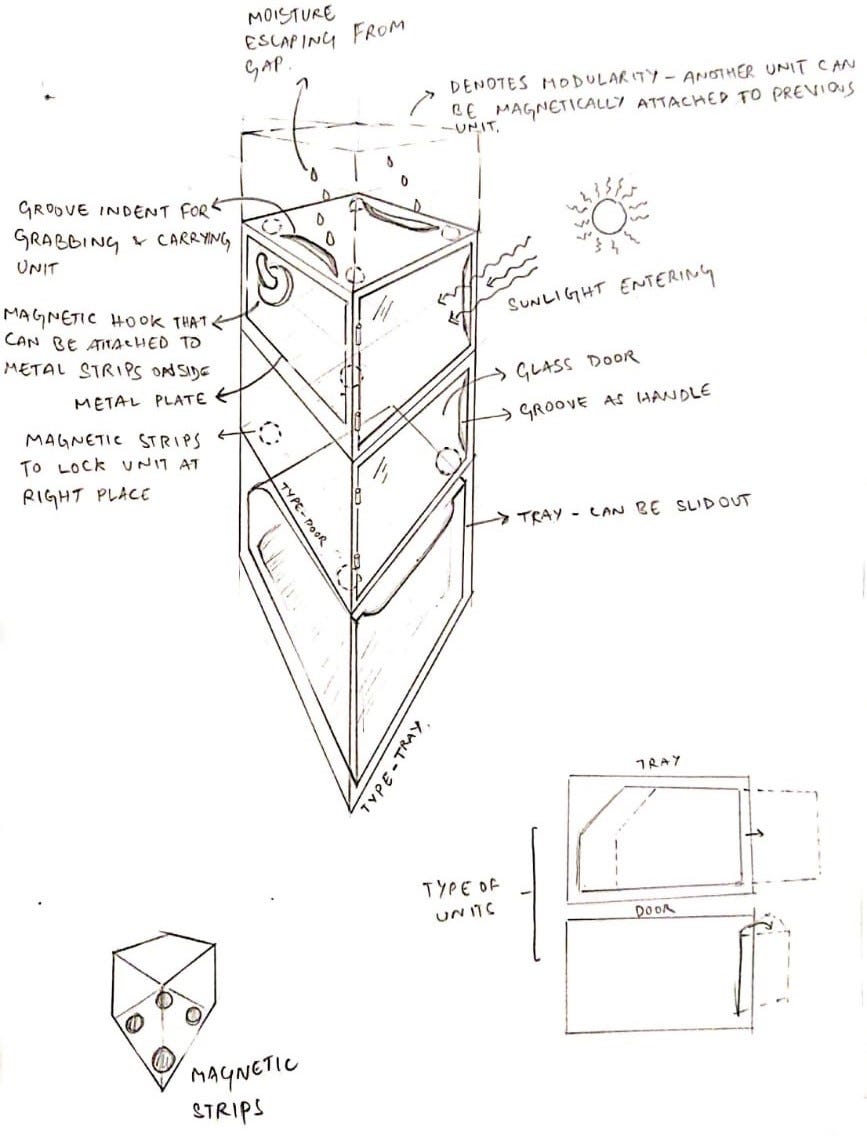 MOISTURE
ESCAPING FROM
GAP.
DENOTES MODULARITY - ANOTHER UNIT CAN
BE MAGNETICALLY ATTACHED TO PREVIOUS
UNIT.
GROOVE INDENT FOR
GRABBING & CARRYING
UNIT
SUNLIGHT ENTERING
MAGNETIC HOOK THAT
CAN BE ATTACHED TO
METAL STRIPS ON SIDE
METAL PLATE
GLASS DOOR
GROOVE AS HANDLE
MAGNETIC STRIPS
TO LOCK UNIT AT
RIGHT PLACE
TYPE-DOOR
TRAY - CAN BE SLID OUT
TYPE-TRAY.
TRAY
TYPE OF
UNITS
DOOR
MAGNETIC
STRIPS